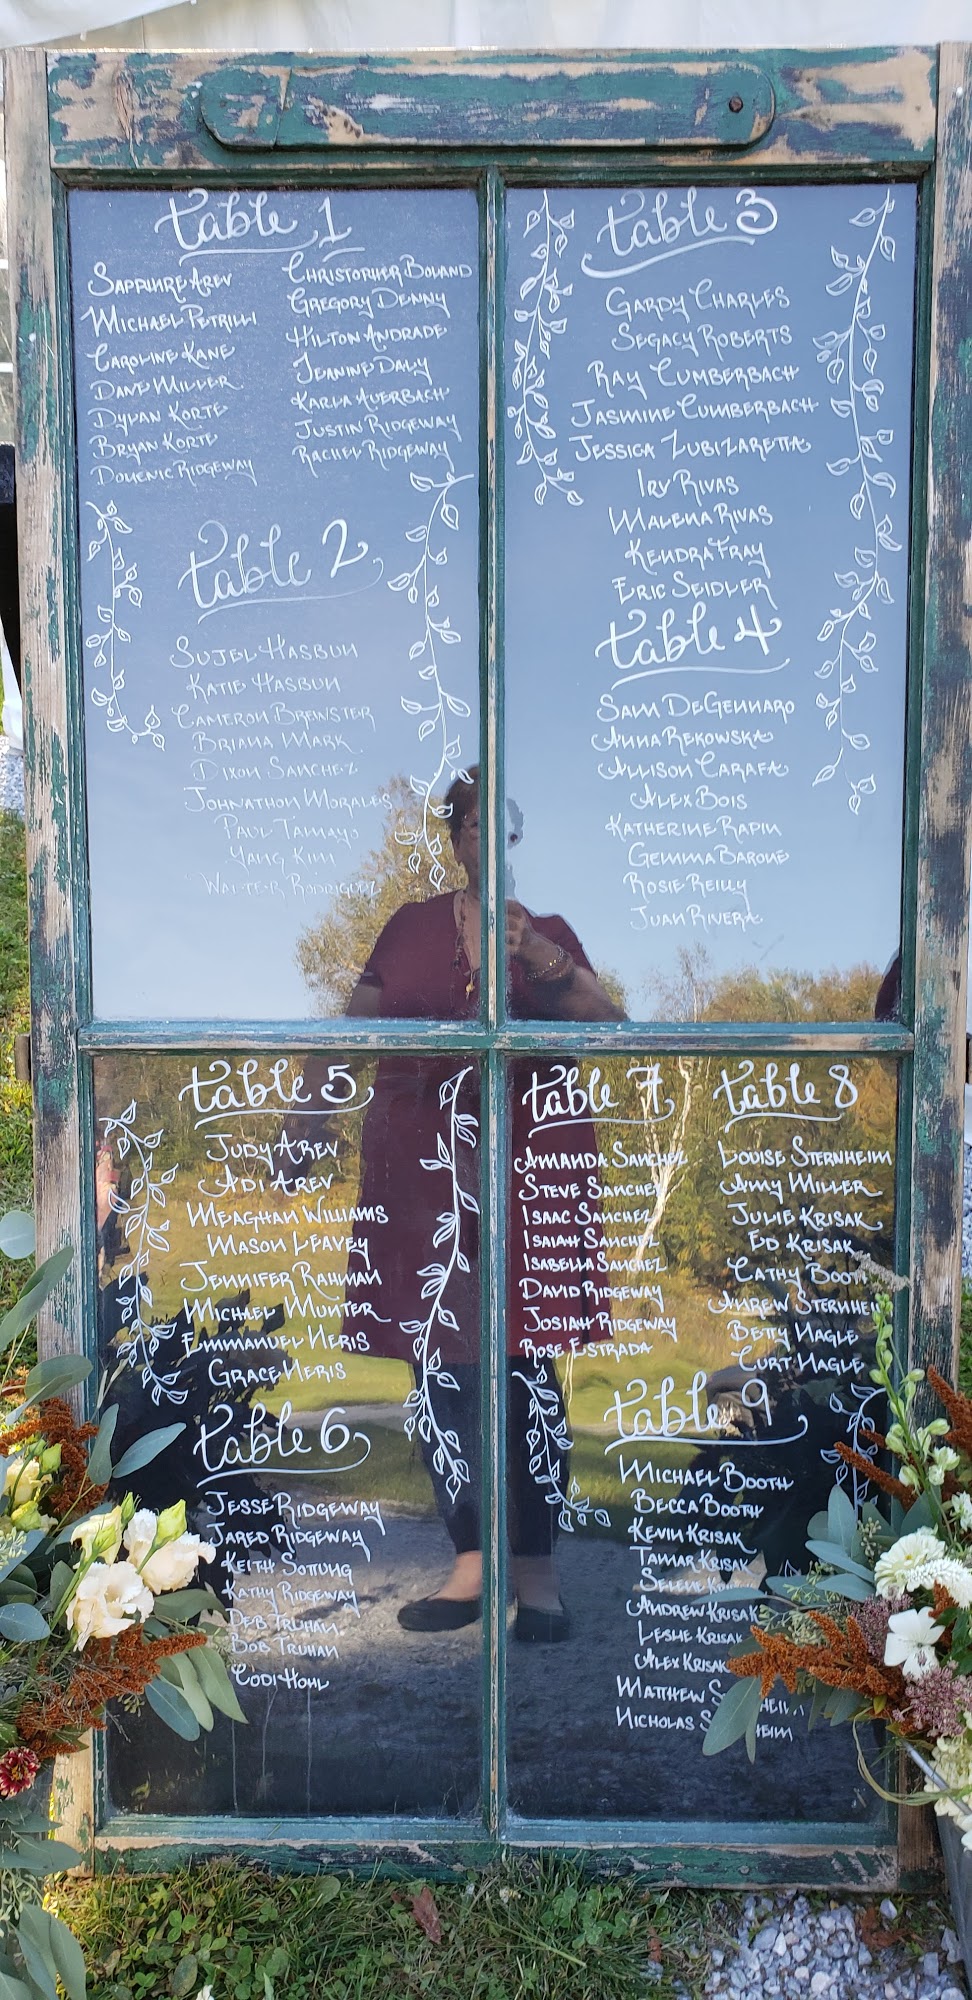 Table 1
Sapphire Arev
Michael Petrilli
Caroline Kane
Dave Miller
Dylan Korte
Bryan Korte
Domenic Ridgeway
Christopher Boland
Gregory Denny
Hilton Andrade
Jeanine Daly
Karla Auerbach
Justin Ridgeway
Rachel Ridgeway
Table 2
Sujel Hasbun
Katie Hasbun
Cameron Brewster
Briana Mark
Dixon Sanchez
Johnathon Morales
Paul Tamayo
Yang Kim
Walter Rodriguez
Table 3
Gardy Charles
Segacy Roberts
Ray Cumberbach
Jasmine Cumberbach
Jessica Zubizaretta
Irv Rivas
Malena Rivas
Kendra Fray
Eric Seidler
Table 4
Sam DeGennaro
Anna Rekowska
Allison Carafa
Alex Bois
Katherine Rapin
Gemma Barone
Rosie Reilly
Juan Rivera
Table 5
Judy Arev
Adi Arev
Meaghan Williams
Mason Leavey
Jennifer Rahman
Michael Munter
Emmanuel Heris
Grace Heris
Table 6
Jesse Ridgeway
Jared Ridgeway
Keith Sottung
Kathy Ridgeway
Deb Truhan
Bob Truhan
Codi Hohl
Table 7
Amanda Sanchez
Steve Sanchez
Isaac Sanchez
Isaiah Sanchez
Isabella Sanchez
David Ridgeway
Josiah Ridgeway
Rose Estrada
Table 8
Louise Sternheim
Amy Miller
Julie Krisak
Ed Krisak
Cathy Booth
Andrew Sternheim
Betty Hagle
Curt Hagle
Table 9
Michael Booth
Becca Booth
Kevin Krisak
Tamar Krisak
Selene
Andrew Krisak
Leslie Krisak
Alex Krisak
Matthew
Nicholas